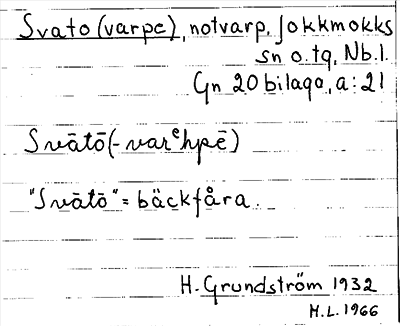 Svato (varpe), notvarp. Jokkmokks
sn o. tg, Nb. l.
Gn 20 bilaga, a: 21
Svātō (-varᵉhpē)
"Svātō" = bäckfåra.
H. Grundström 1932
H.L. 1966